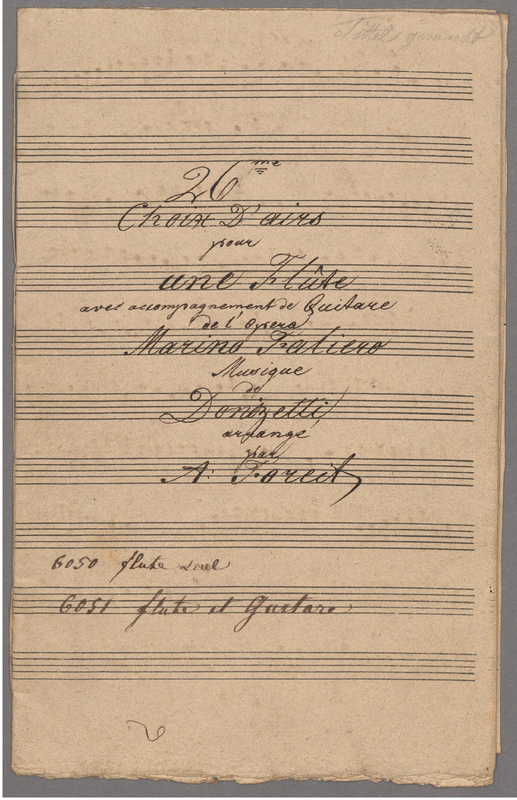 Tittel gemacht
26me
Choix D'airs
pour
une Flûte
avec accompagnement de Guitare
de l'Opera
Marino Faliero
Musique
de
Donizetti
arrangé
par
A: Foreit
6050 flute seul
6051 flute et Guitare